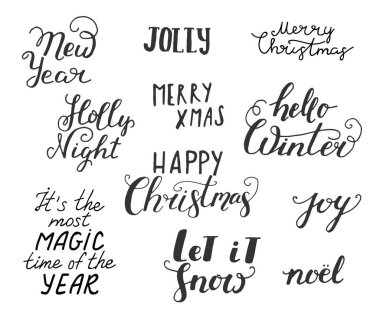 New
Year
JOLLY
Merry
Christmas
Holly
Night
MERRY
XMAS
hello
Winter
HAPPY
Christmas
It's the
most
MAGIC
time of the
YEAR
LET iT
Snow
joy
noël